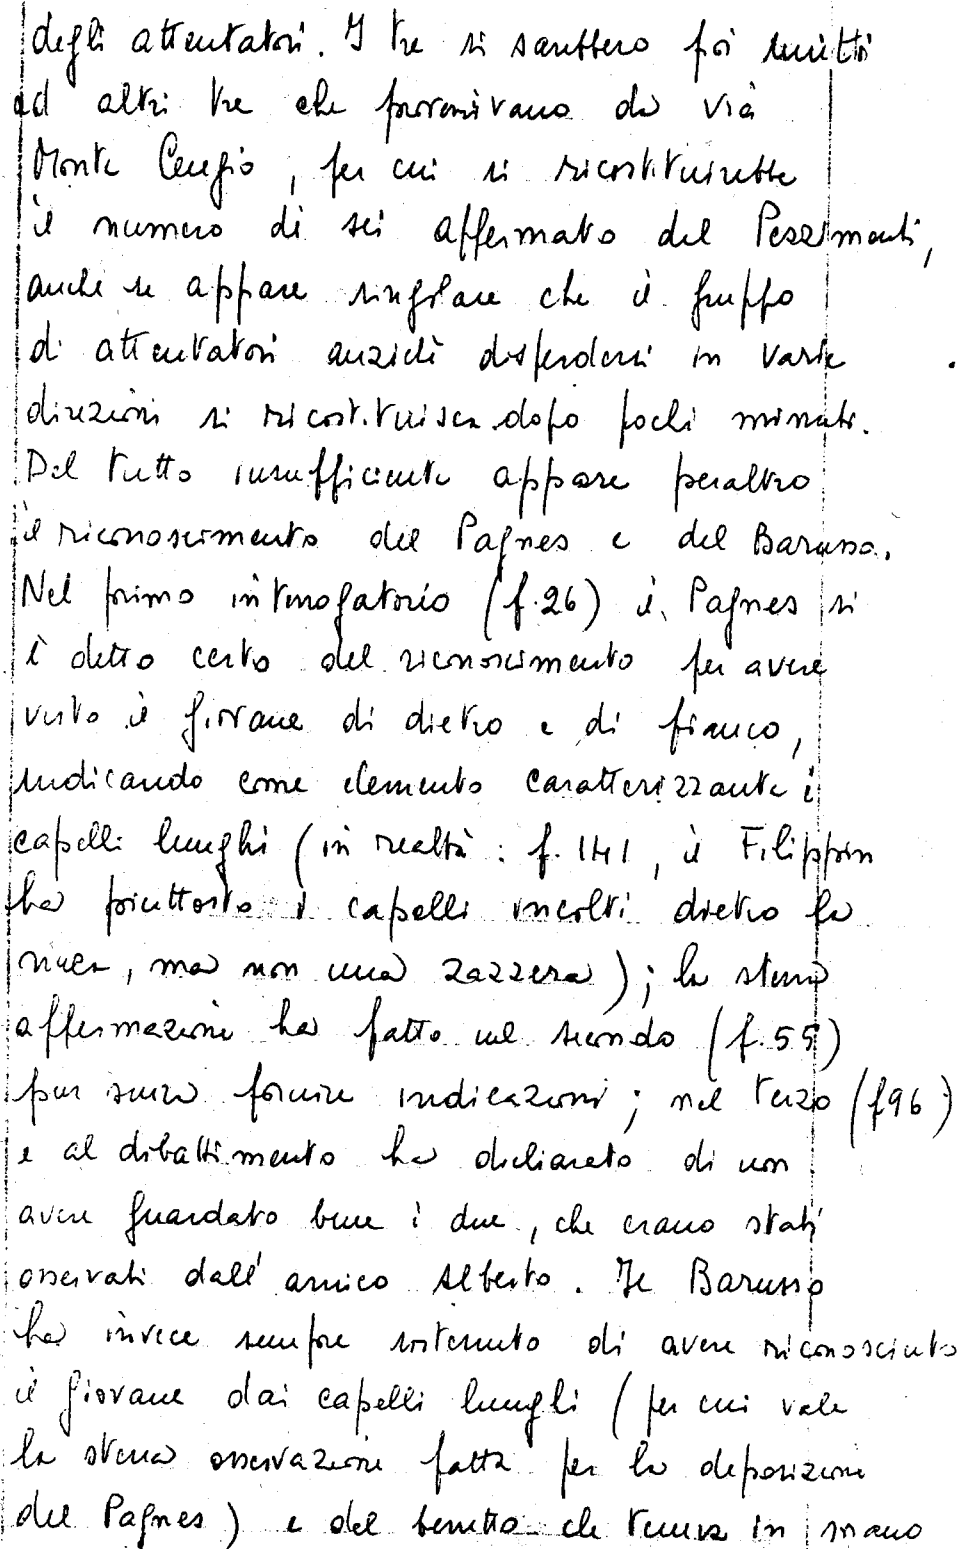 degli attentatori. I tre si sarebbero poi uniti
ad altri tre che provenivano da via
Monte Cengio, per cui si ricostituirebbe
il numero di sei affermato dal Pezzimenti,
anche se appare singolare che il gruppo
di attentatori anziché disperdersi in varie
direzioni si ricostituisca dopo pochi minuti.
Del tutto insufficiente appare peraltro
il riconoscimento del Pagnes e del Barusso.
Nel primo interrogatorio (f. 26) il Pagnes si
è detto certo del riconoscimento per avere
visto il giovane di dietro e di fianco,
indicando come elemento caratterizzante i
capelli lunghi (in realtà: f. 141, il Filippin
ha piuttosto i capelli incolti dietro la
nuca, ma non una zazzera); la stessa
affermazione ha fatto nel secondo (f. 55)
pur senza fornire indicazioni; nel terzo (f 96)
e al dibattimento ha dichiarato di non
avere guardato bene i due, che erano stati
osservati dall'amico Alberto. Il Barusso
ha invece sempre sostenuto di avere riconosciuto
il giovane dai capelli lunghi (per cui vale
la stessa osservazione fatta per la deposizione
del Pagnes) e dal berretto che teneva in mano